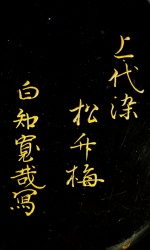 上代染
松竹梅
白知寛哉写